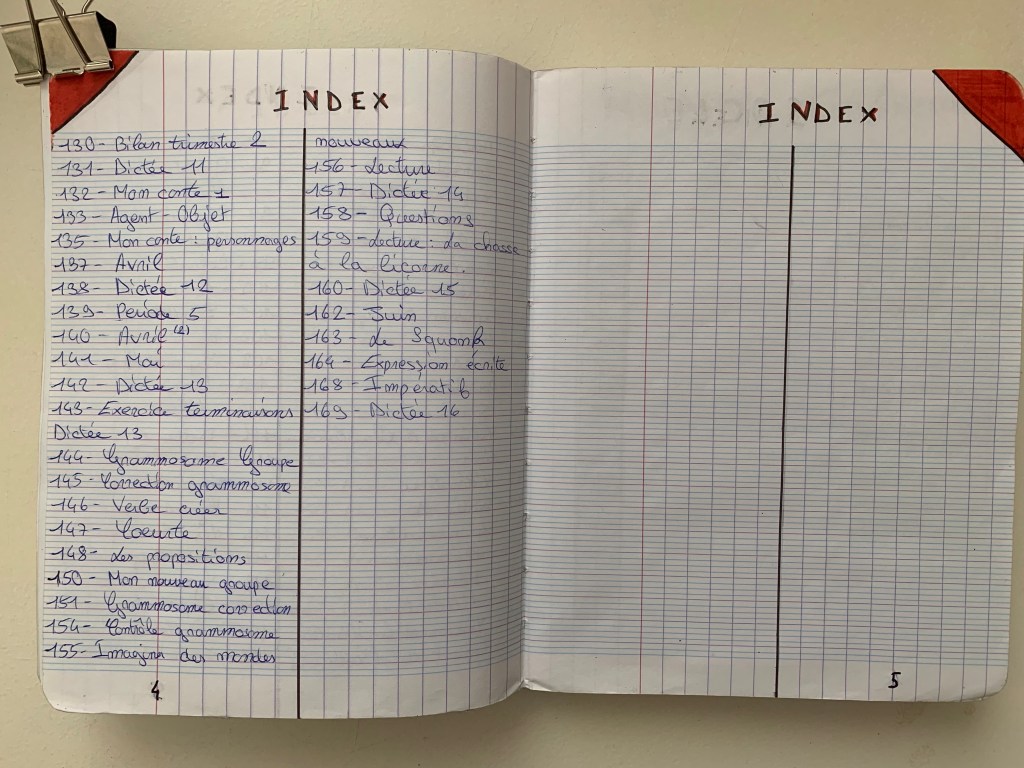 INDEX
130 - Bilan trimestre 2
131 - Dictée 11
132 - Mon conte 1
133 - Agent - Objet
135 - Mon conte : personnages
137 - Avril
138 - Dictée 12
139 - Période 5
140 - Avril (2)
141 - Mai
142 - Dictée 13
143 - Exercice terminaisons
Dictée 13
144 - Grammosome Groupe
145 - Correction grammosome
146 - Verbe créer
147 -
148 - Les propositions
150 - Mon nouveau groupe
151 - Grammosome correction
154 - Contrôle grammosome
155 - Imaginer des mondes
4
nouveaux
156 - Lecture
157 - Dictée 14
158 - Questions
159 - Lecture : La chasse
à la licorne.
160 - Dictée 15
162 - Juin
163 - Le Squonk
164 - Expression écrite
168 - Impératif
169 - Dictée 16
INDEX
5